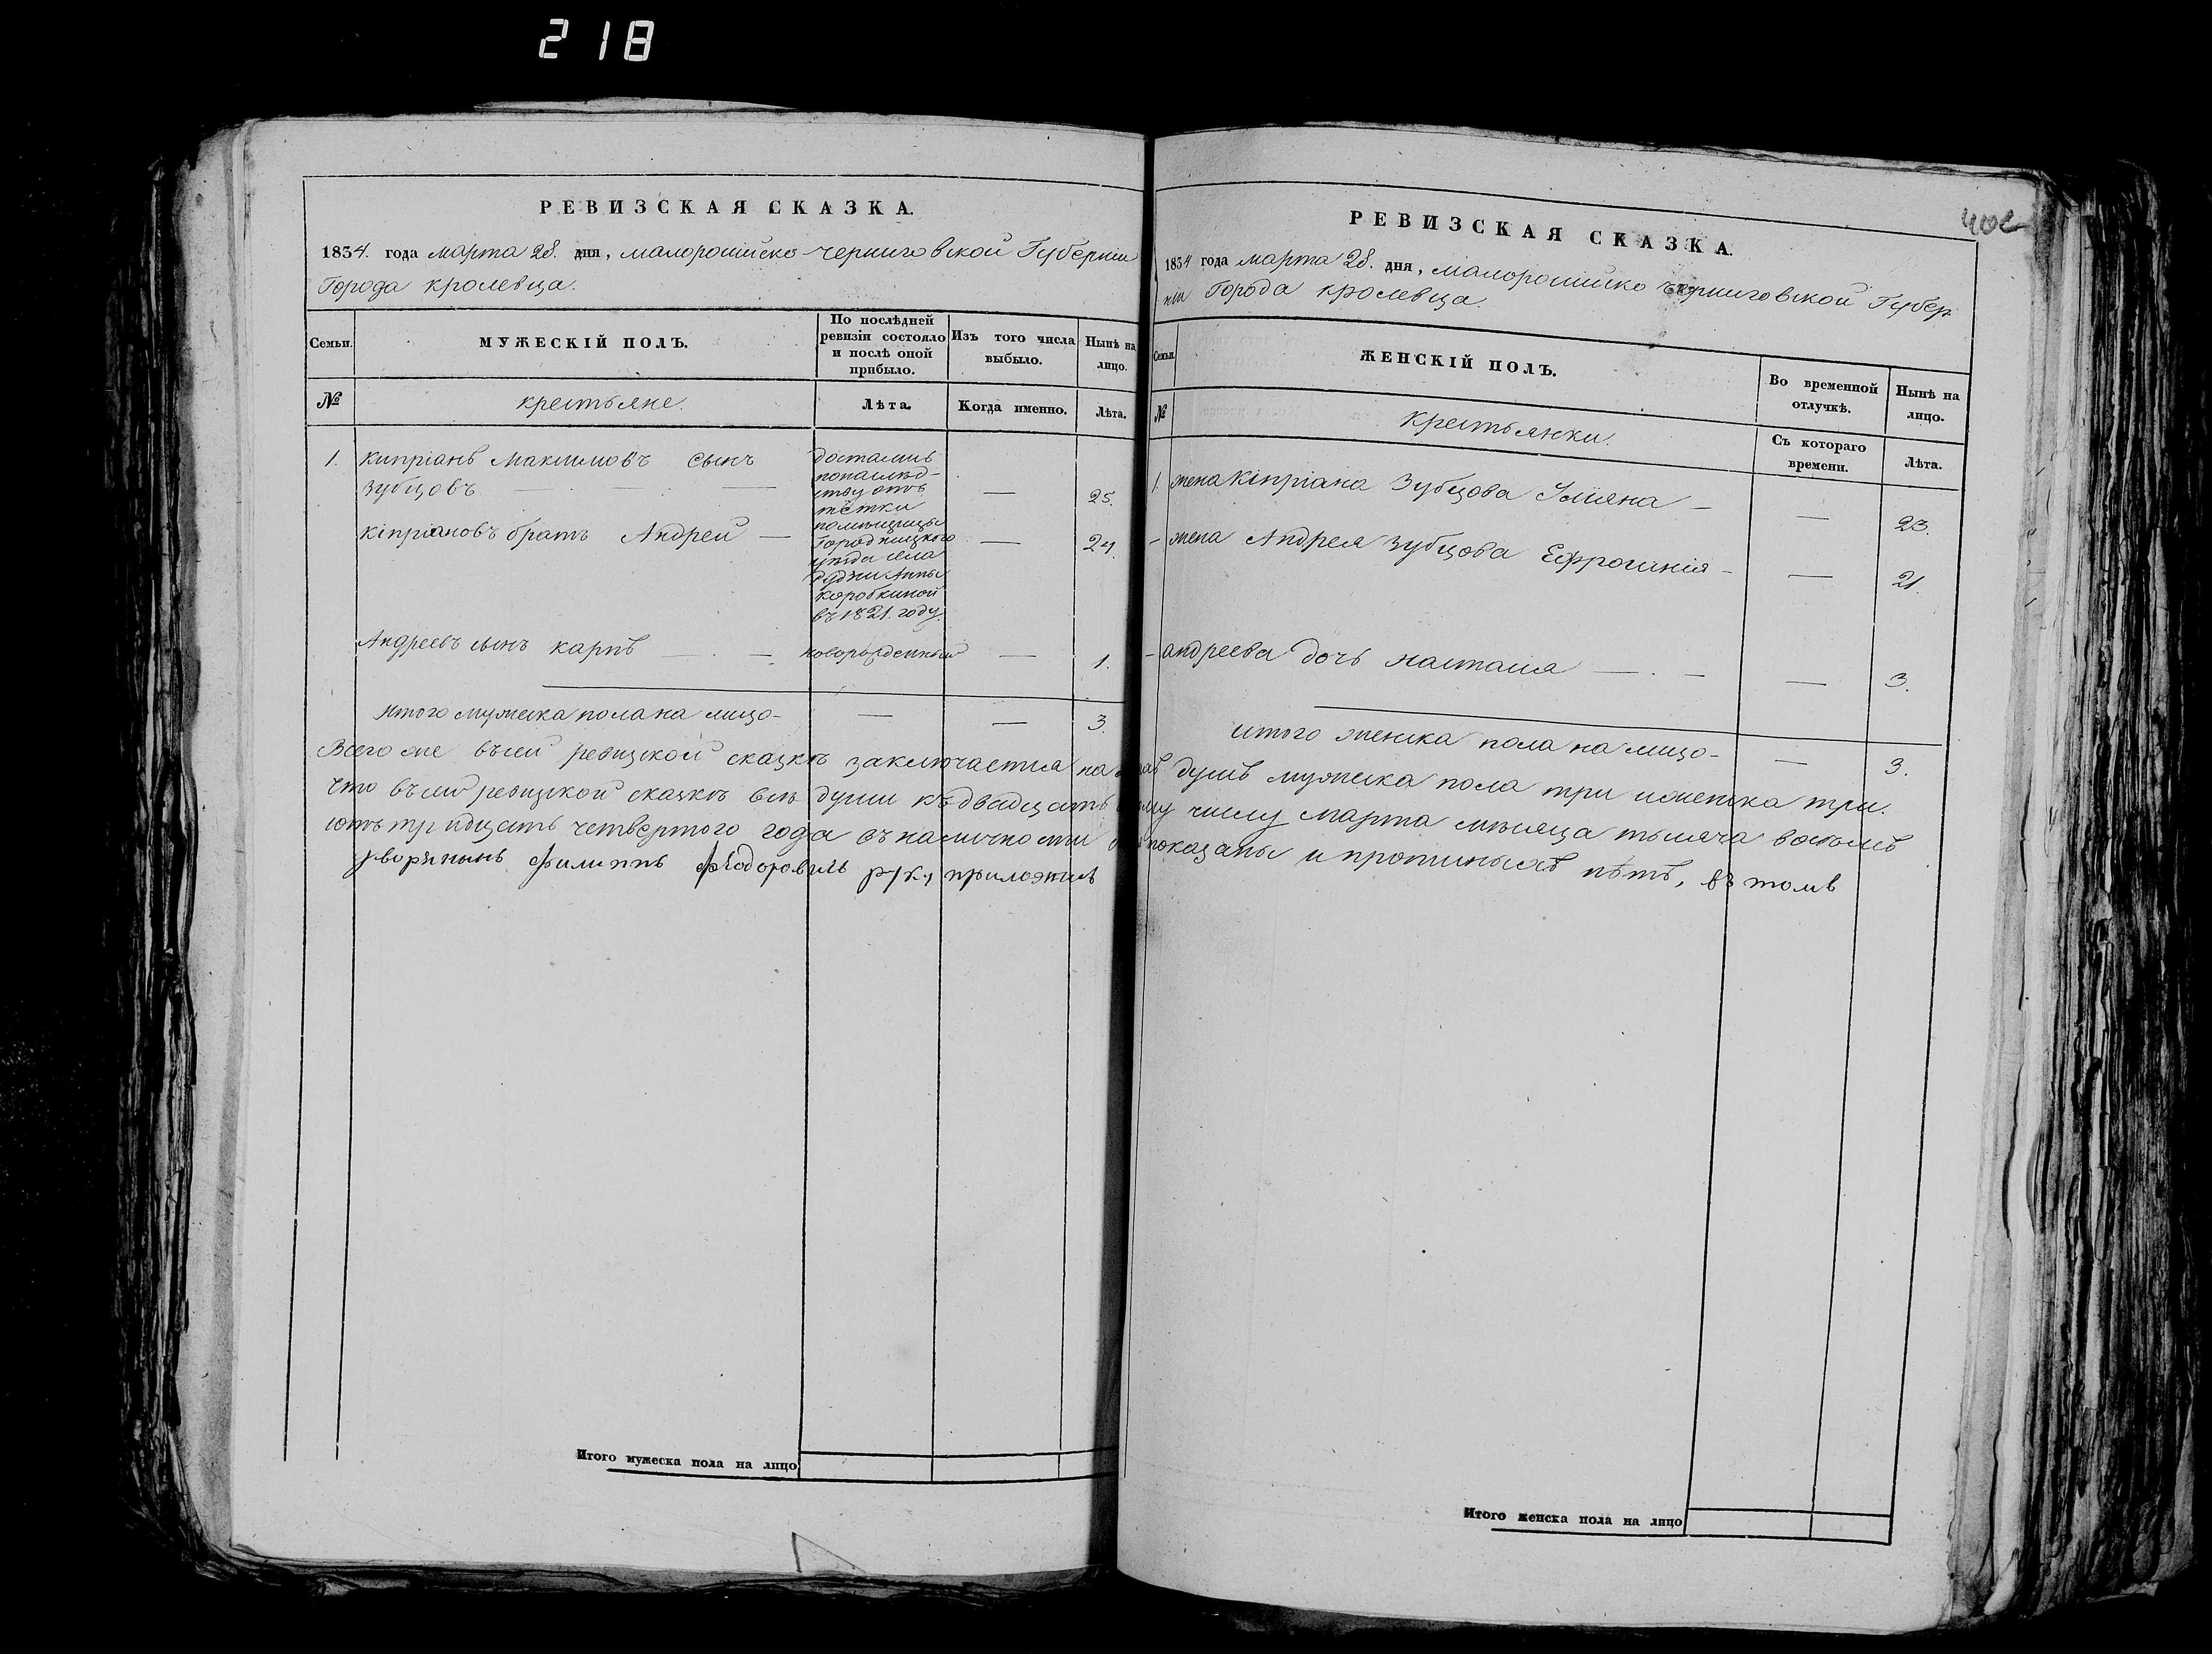 218
РЕВИЗСКАЯ СКАЗКА.
1834. года марта 28. дня, малоросійско-черниговской Губерніи
Города кролевца.
Семьи.
МУЖЕСКІЙ ПОЛЪ.
По послѣдней ревизіи состояло и послѣ оной прибыло.
Изъ того числа выбыло.
Нынѣ на лицо.
№
крестьяне.
Лѣта.
Когда именно.
Лѣта.
1. Кипріанъ Максимовъ сынъ
Зубцовъ — — 25.
достались
понаслѣд-
ству отъ
тётки
помѣщицы
Городницкого
уѣзда села
Анны
коробкиной
въ 1821. году.
кіпріановъ братъ Андрей — — 24.
Андреевъ сынъ карпъ — — новорожденный — 1.
итого мужеска пола на лицо — — — 3.
РЕВИЗСКАЯ СКАЗКА.
1834 года марта 28. дня, малоросійско черниговской Губер
ніи Города кролевца.
Семьи.
ЖЕНСКІЙ ПОЛЪ.
Во временной отлучкѣ.
Нынѣ на лицо.
№
Крестьянки.
Съ котораго времени.
Лѣта.
1. жена Кіпріана Зубцова Уліяна — — 23.
- жена Андрея Зубцова Ефросинія — — 21.
- андреева дочь настасія — — — 3.
итого женска пола на лицо — — 3.
Всего же въсей ревизской сказкѣ заключается на душъ мужеска пола три иженска три.
Что въсей ревизской сказкѣ всѣ души къ двадцать числу марта мѣсяца тысяча восемъ
сотъ тридцать четвертого года въ наличности показаны и прописныхъ нѣтъ, въ томъ
дворянинъ Филиппъ Федоровичь руку приложилъ
Итого мужеска пола на лицо
Итого женска пола на лицо